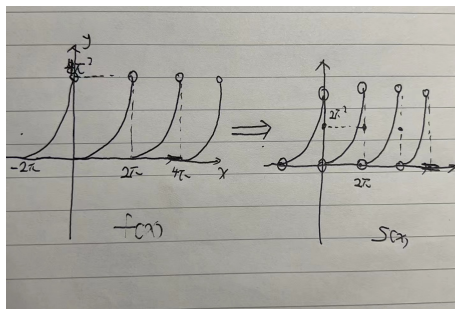 y
4π²
-2π
2π
4π
x
f(x)
2π²
2π
S(x)